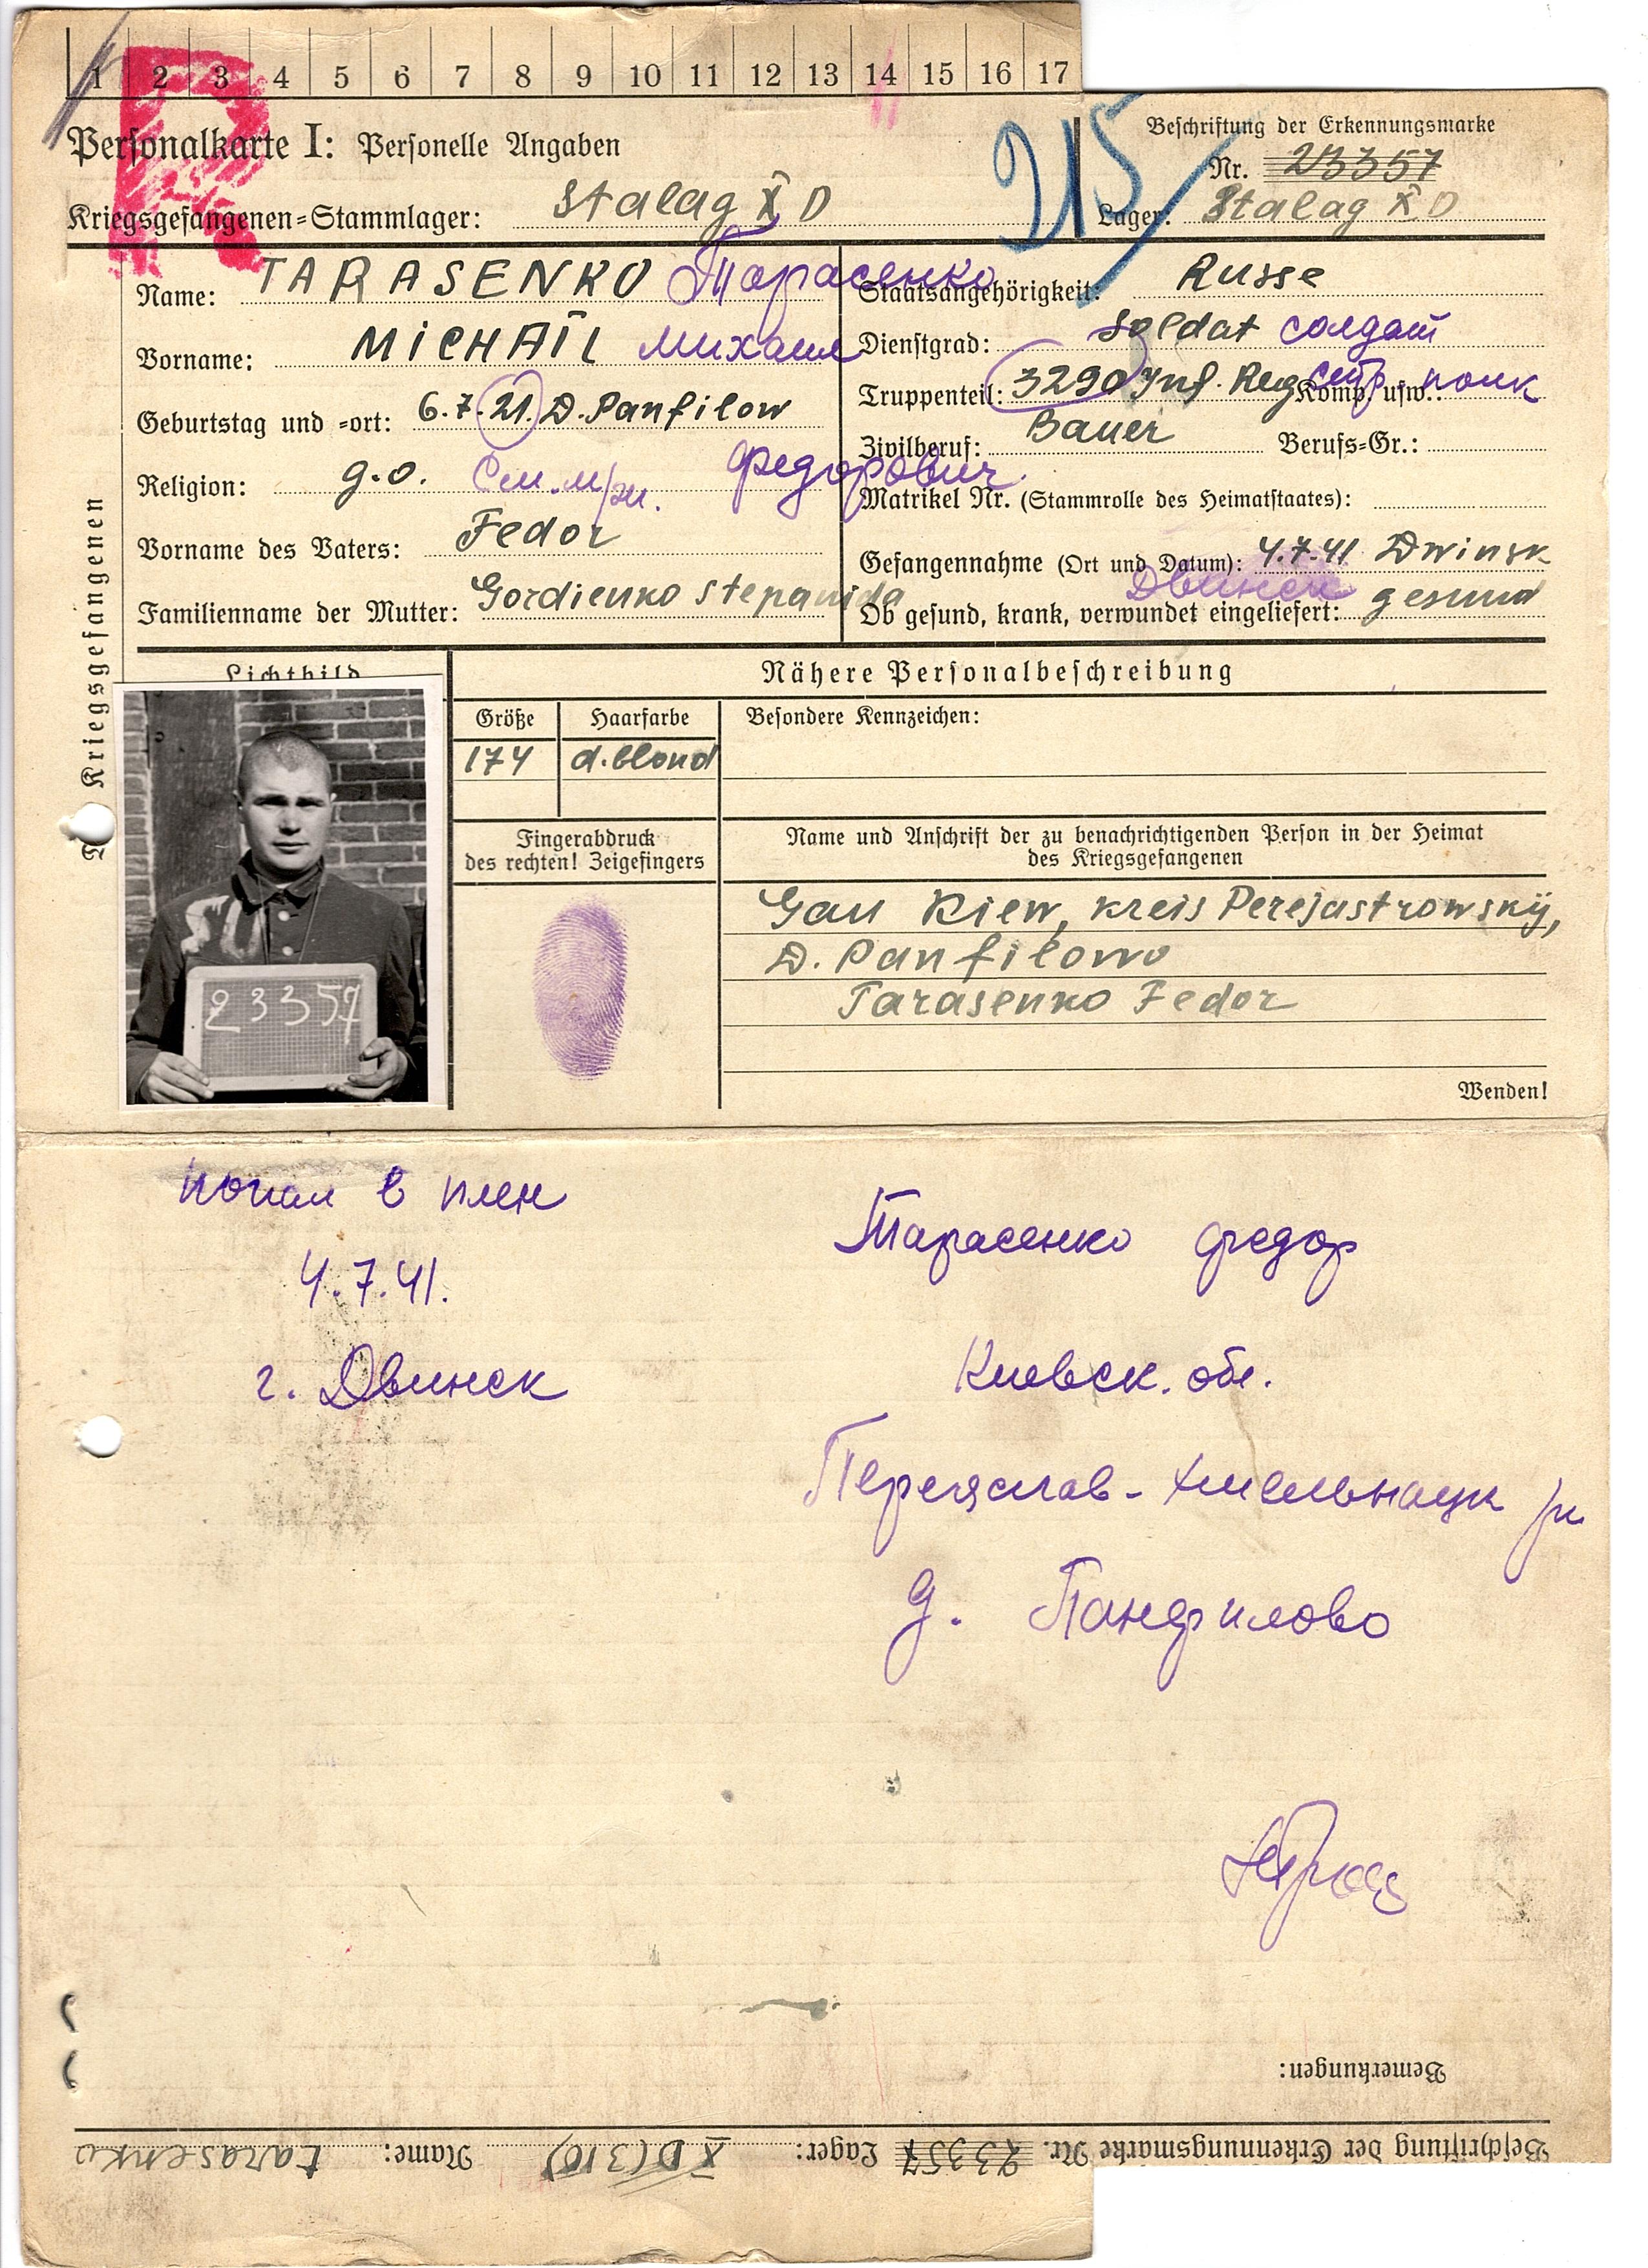 1 2 3 4 5 6 7 8 9 10 11 12 13 14 15 16 17
Personalkarte I: Personelle Angaben
Kriegsgefangenen-Stammlager: Stalag X D
215
Beschriftung der Erkennungsmarke
Nr. 23357
Lager: Stalag X D
Name: TARASENKO Тарасенко
Vorname: MICHAIL Михаил
Geburtstag und -ort: 6.7.21. D. Panfilow
Religion: g.o.
Федорович
Vorname des Vaters: Fedor
Familienname der Mutter: Gordienko Stepanida
Staatsangehörigkeit: Russe
Dienstgrad: Soldat солдат
Truppenteil: 3290 Inf. Reg Komp. usw.: стр. полк
Zivilberuf: Bauer Berufs-Gr.:
Matrikel Nr. (Stammrolle des Heimatstaates):
Gefangennahme (Ort und Datum): 4.7.41 Dwinsk
Двинск
Ob gesund, krank, verwundet eingeliefert: gesund
Kriegsgefangenen
Lichtbild
23357
Nähere Personalbeschreibung
Größe Haarfarbe Besondere Kennzeichen:
174 d.blond
Fingerabdruck
des rechten! Zeigefingers
Name und Anschrift der zu benachrichtigenden Person in der Heimat
des Kriegsgefangenen
Gau Kiew, Kreis Perejastrowskij,
D. Panfilowo
Tarasenko Fedor
Wenden!
попал в плен
4.7.41.
г. Двинск
Тарасенко Федор
Киевск. обл.
Переяслав-Хмельницк
д. Панфилово
Bemerkungen:
Beschriftung der Erkennungsmarke Nr. 23357 Lager: X D (310) Name: Tarasenko